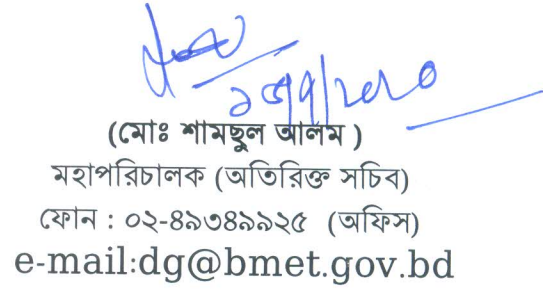 (মোঃ শামছুল আলম )
মহাপরিচালক (অতিরিক্ত সচিব)
ফোন : ০২-৪৯৩৪৯৯২৫ (অফিস)
e-mail:dg@bmet.gov.bd